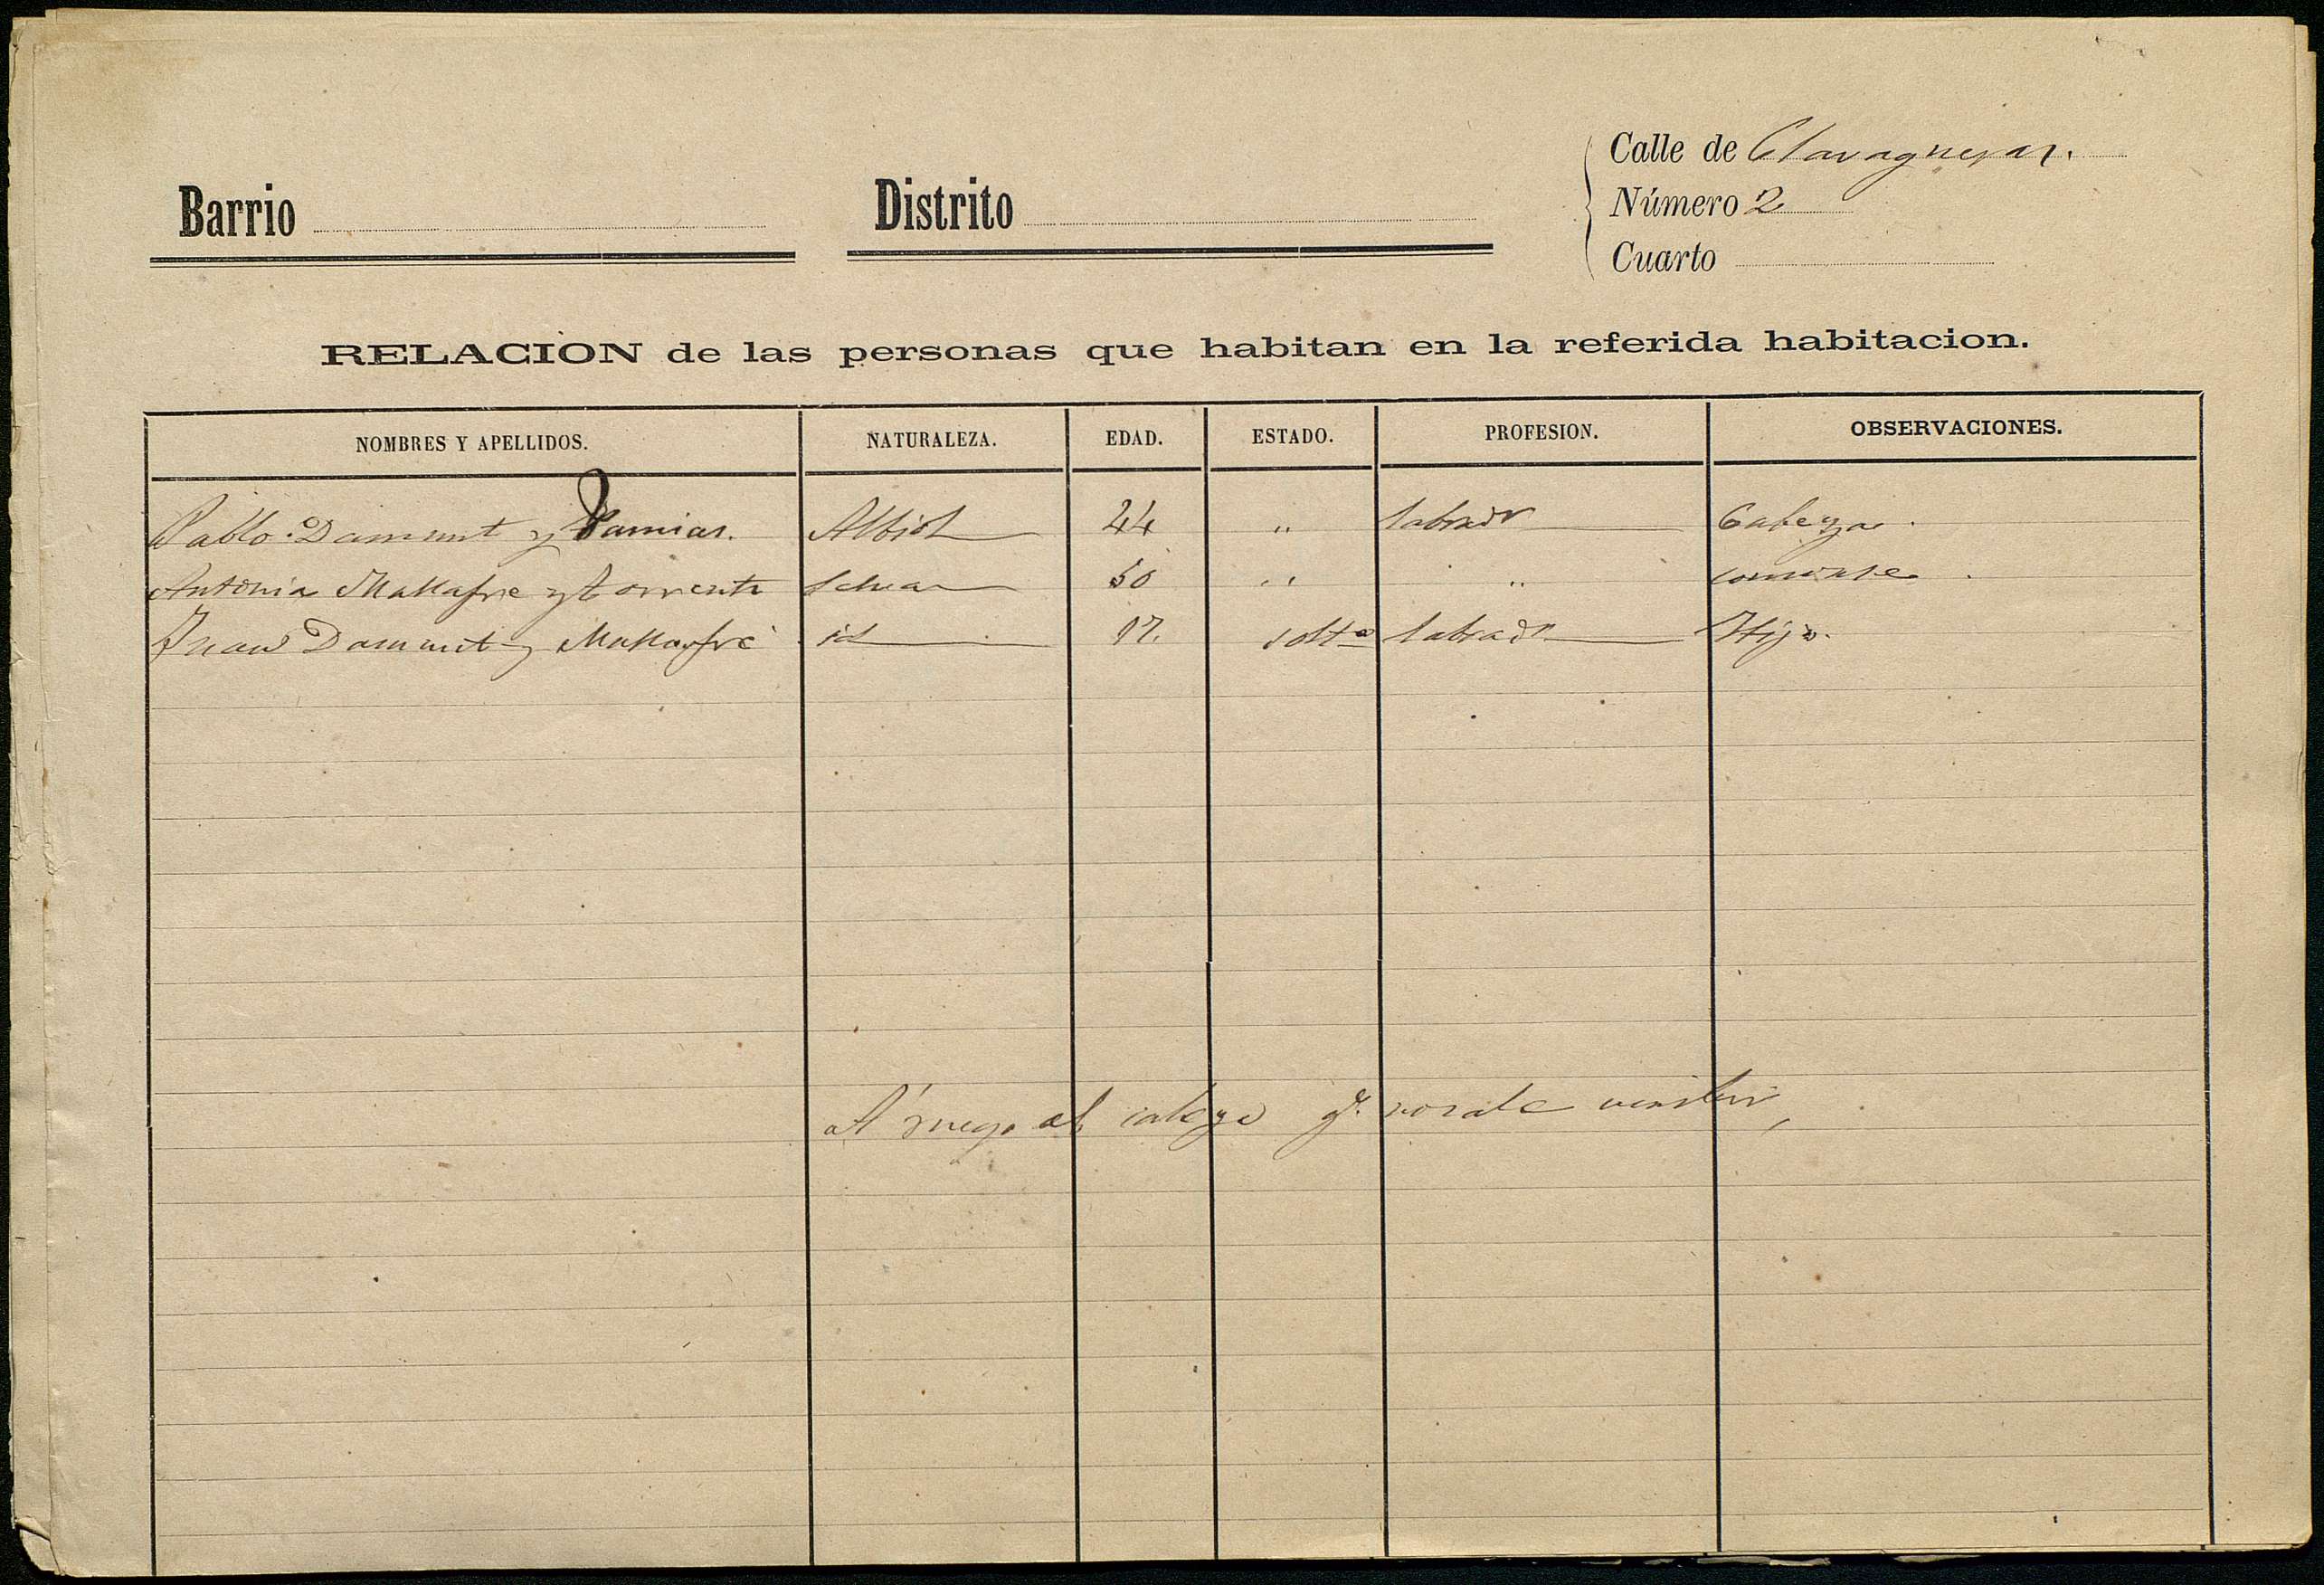 Calle de Clavagueras.
Barrio Distrito Número 2
Cuarto
RELACION de las personas que habitan en la referida habitacion.
NOMBRES Y APELLIDOS. NATURALEZA. EDAD. ESTADO. PROFESION. OBSERVACIONES.
Pablo Dammut y Damias. Albiol 44 " labrador Cabeza.
Antonia Mallafre y Torrents Selva 50 " " consorte.
Juan Dammut y Mallafré id 17. solto labrador Hijo.
A ruego del cabeza